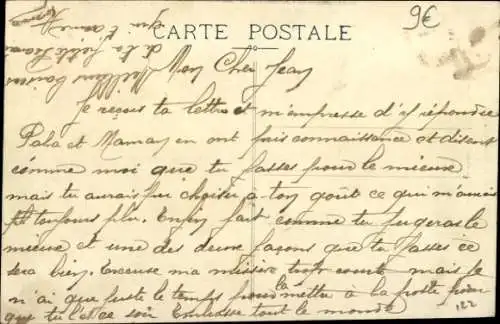 CARTE POSTALE
9€
Meilleurs baisers
de la petite
qui t'aime
Mon Cher Jean
Je reçois ta lettre et m'empresse d'y répondre
Papa et Maman en ont fais connaissance et disant
comme moi que tu fasses pour le mieux
mais tu aurais pu choisir a ton goût ce qui m'aurais
toujours plu. Enfin fait comme tu jugeras le
mieux et une des deux façons que tu fasses ce
sera bien. Excuse ma missive trop courte mais je
n'ai que juste le temps pour la mettre à la poste pour
que tu l'ai ce soir Embrasse tout le monde
122